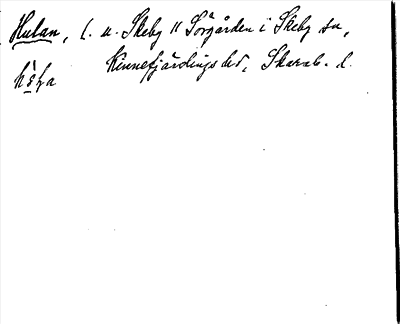 Hulan, l. u. Skeby 11 Sörgården i Skeby sn,
Kinnefjärdings hd, Skarab. l.